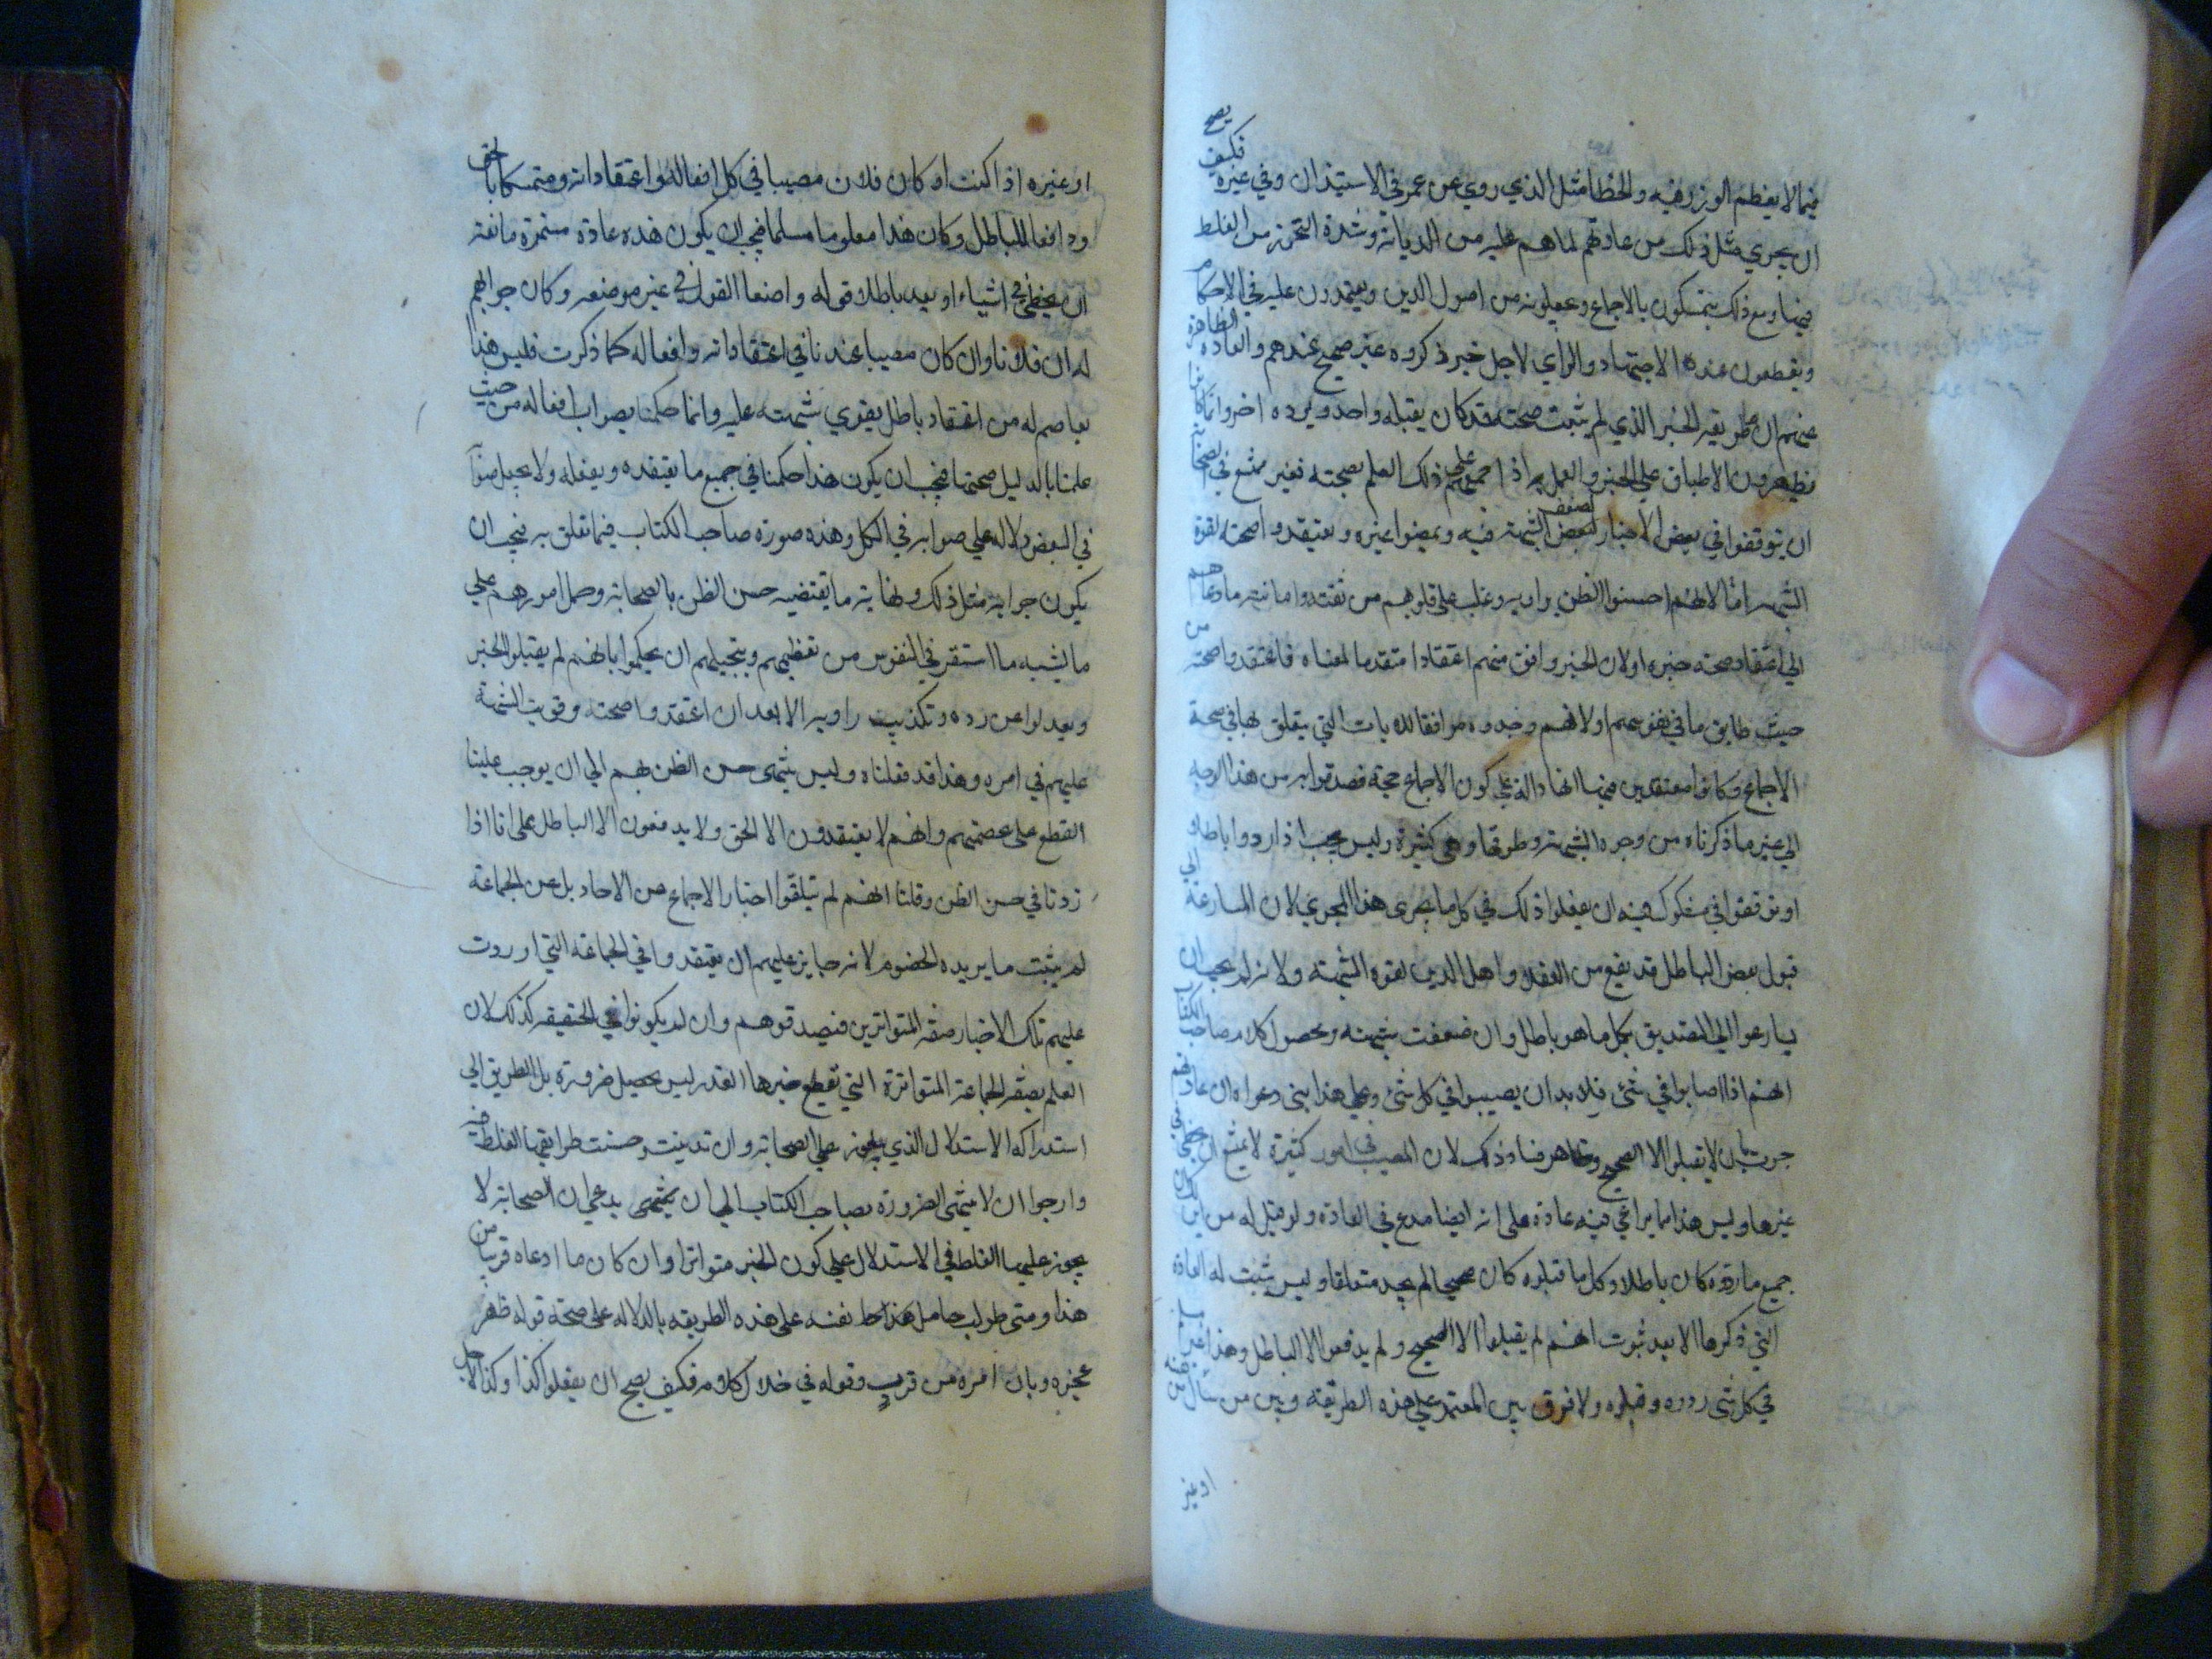 فيما لا يعظم الوزر فيه والخطأ مثل الذي روي عن عمر في الاستيذان وفي غيره فكيف يصح
ان يجري مثل ذلك من عادتهم لما هم عليه من الديانة وشدة التحرز من الغلط
فيها ومع ذلك يتمسكون بالاجماع ويجعلونه من اصول الدين ويعتمدون عليه في الاحكام
ويقطعون عنده الاجتهاد والراي لاجل خبر ذكروه غير صحيح عندهم والعادة الظاهرة
عنهم ان طريقه الخبر الذي لم يثبت صحته قد كان يقبله واحد ويرده اخر وانما كانوا
يظهرون الاطباق علي الخبر والعمل به اذا جمعهم علي ذلك العلم بصحته فغير ممتنع في الصحابة
ان يتوقفوا في بعض الاخبار لبعض الشبهة فيه ويمضوا غيره ويعتقدوا صحته لقوة
الشبهه اما لانهم احسنوا الظن براويه وغلب علي قلوبهم من ثقته وامانته ما دعاهم
الي اعتقاد صحه خبره او لان الخبر وافق منهم اعتقادا متقدما لمعناه فاعتقدوا صحته من
حيث طابق ما في نفوسهم او لانهم وجدوه موافقا للايات التي يتعلق بها في صحة
الاجماع وكانوا معتقدين فيها انها دالة علي كون الاجماع حجة فصدقوا به من هذا الوجه
الي غير ما ذكرناه من وجوه الشبهة وطرقها وهي كثيرة وليس يجب اذا ردوا باطلا
او توقفوا في مشكوك فيه ان يفعلوا ذلك في كل ما يجرى هذا المجري لان المسارعة الي
قبول بعض الباطل قد يقع من العقلاء واهل الدين لقوه الشبهة ولا يلزم يجب ان
يسارعوا الي التصديق بكل ما هو باطل وان ضعفت شبهته ومحصول كلام صاحب الكتاب
انهم اذا اصابوا في شئ فلا بد ان يصيبوا في كل شئ وعلي هذا بني دعواه ان عادتهم
جرت بان لا يقبلوا الا الصحيح وذلك لان المصيب في امور كثيرة لا يمتنع ان يخطي في
غيرها وليس هذا مما يراعي فيه عادة على انه ايضا مدع في العادة ولو قيل له من اين لك ان
جميع ما ردوه كان باطلا وكل ما قبلوه كان صحيحا لم يجد متعلقا وليس يثبت له العادة
التي ذكرها الا بعد ثبوت انهم لم يقبلوا الا الصحيح ولم يدفعوا الا الباطل وهذا غير مسلم
في كل شي ردوه وقبلوه ولا فرق بين المعتمد علي هذه الطريقة وبين من سأل عن نفسه
او غير
او غيره اذا كنت او كان فلان مصيبا في كل افعاله واعتقاداته ومتمسكا بالحق
ودافعا للباطل وكان هذا معلوما مسلما فيجب ان يكون هذه عادة مستمرة مانعة
ان يخطي في اشياء او يعيد باطلا قوله واضعا القول في غير موضعه وكان جوابهم
له ان فلانا وان كان مصيبا عندنا في اعتقاداته وافعاله كما ذكرت فليس هذا
بعاصم له من اعتقاد باطل يقوي شبهته عليه وانما حكمنا بصواب افعاله من حيث
علمنا بالدليل صحتها فيجب ان يكون هذا حكمنا في جميع ما يعتقده ويفعله ولا يجعل صوابه
في البعض دلالة علي صوابه في الكل وهذه صورة صاحب الكتاب فيما تعلق به فيجب ان
يكون جوابه مثل ذلك ونهاية ما يقتضيه حسن الظن بالصحابة وحمل امورهم علي
ما يشبه ما استقر في النفوس من تعظيمهم وتبجيلهم ان يحكموا بانهم لم يقبلوا الخبر
ويعدلوا عن رده وتكذيب راويه الا بعد ان اعتقدوا صحته وقويت الشبهة
عليهم في امره وهذا قد فعلناه وليس ينتهى حسن الظن بهم الي ان يوجب علينا
القطع على عصمتهم وانهم لا يعتقدون الا الحق ولا يدفعون الا الباطل على انا اذا
زدنا في حسن الظن وقلنا انهم لم يتلقوا اخبار الاجماع من الاحاد بل عن الجماعة
لم يثبت ما يريده الخصوم لانه جايز عليهم ان يعتقدوا في الجماعة التي اوردت
عليهم تلك الاخبار صفة المتواترين فيصدقوهم وان لم يكونوا في الحقيقه كذلك لان
العلم بصفه الجماعة المتواترة التي تقطع خبرها العذر ليس يحصل ضرورة بل الطريق الي
استدراكه الاستدلال الذي يجوز علي الصحابة وان تدينت وحسنت طرايقها الغلط فيه
وارجوا ان لا ينتهى الضرورة بصاحب الكتاب الي ان يدعي ان الصحابة لا
يجوز عليها الغلط في الاستدلال علي كون الخبر متواترا وان كان ما ادعاه قريبا من
هذا ومتى طولب حامل هذا نفسه على هذه الطريقه بالدلاله على صحة قوله ظهر
عجزه وبان امره من قرب وقوله في خلال كلامه فكيف يصح ان يفعلوا كذا وكذا لاجل